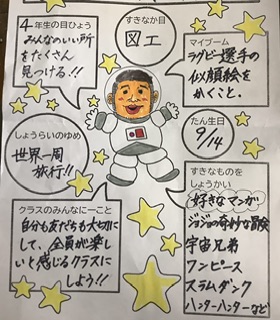 4年生の目ひょう
みんなのいい所
をたくさん
見つける!!
すきなか目
図工
マイブーム
ラグビー選手の
似顔絵を
かくこと。
しょうらいのゆめ
世界一周
旅行!!
たん生日
9/14
クラスのみんなに一こと
自分も友だちも大切に
して、全員が楽し
いと感じるクラスに
しよう!!
すきなものを
しょうかい
好きなマンガ
ジョジョの奇妙な冒険
宇宙兄弟
ワンピース
スラムダンク
ハンターハンターなど